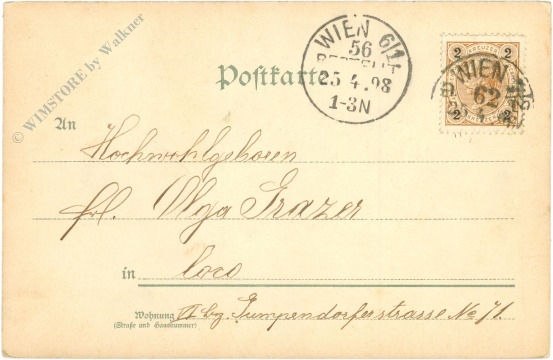 © WIMSTORE by Walkner
Postkarte
WIEN 6/1
56
BESTELLT
25.4.98
1-3N
2 KREUZER 2
2 2
WIEN
62
An
Hochwohlgeboren
Frl. Olga Grazer
in Loco
Wohnung VI bz. Gumpendorferstrasse No 71.
(Straße und Hausnummer)